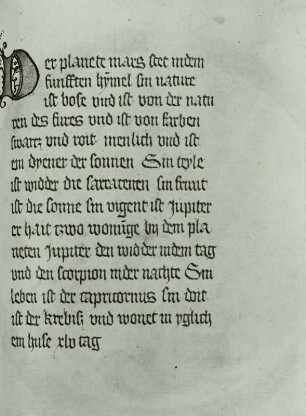 Der planete mars stet indem
funfften hymel sin nature
ist bose vnd ist von der natu
ren des fures vnd ist von farben
swartz vnd roit menlich vnd ist
ein dyener der sonnen Sin teyle
ist widder die sarracenen sin frunt
ist die sonne sin vigent ist Jupiter
er hait zwo wonunge by dem pla
neten Jupiter den widder indem tag
vnd den scorpion inder nachte Sin
leben ist der capricornus sin doit
ist der krebis vnd wonet in yglich
em huse xlv tag